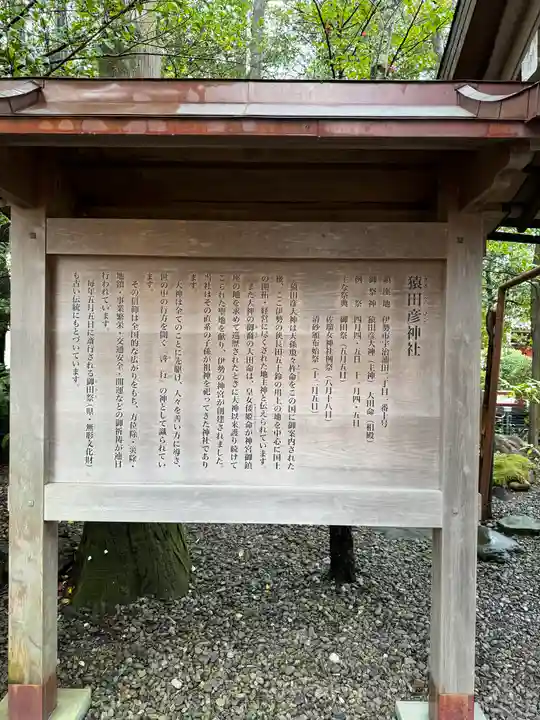 猿田彦神社
鎮座地　伊勢市宇治浦田二丁目一番十号
御祭神　猿田彦大神（主神）　大田命（相殿）
例　祭　四月四、五日　十一月四・五日
主な祭典　御田祭（五月五日）
佐瑠女神社例祭（八月十八日）
清砂頒布始祭（十二月五日）
猿田彦大神は天孫瓊々杵命をこの国に御案内された
後、ここ伊勢の狭長田五十鈴の川上の地を中心に国土
の開拓・経営に尽くされた地主神と伝えられています。
また大神の御裔の大田命は、皇女倭姫命が神宮御鎮
座の地を求めて巡歴されたときに大神以来護り続けて
こられた聖地を献り、伊勢の神宮が創建されました。
当社はその直系の子孫が祖神を祀ってきた神社であり
ます。
大神は全てのことに先駆け、人々を善い方に導き、
世の中の行方を開く〝啓行〟の神として識られてい
ます。
その信仰は全国的な広がりをもち、方位除・災除・
地鎮・事業繁栄・交通安全・開運などの御祈祷が連日
行われています。
毎年五月五日に斎行される御田祭（県・無形文化財）
も古い伝統にもとづいています。